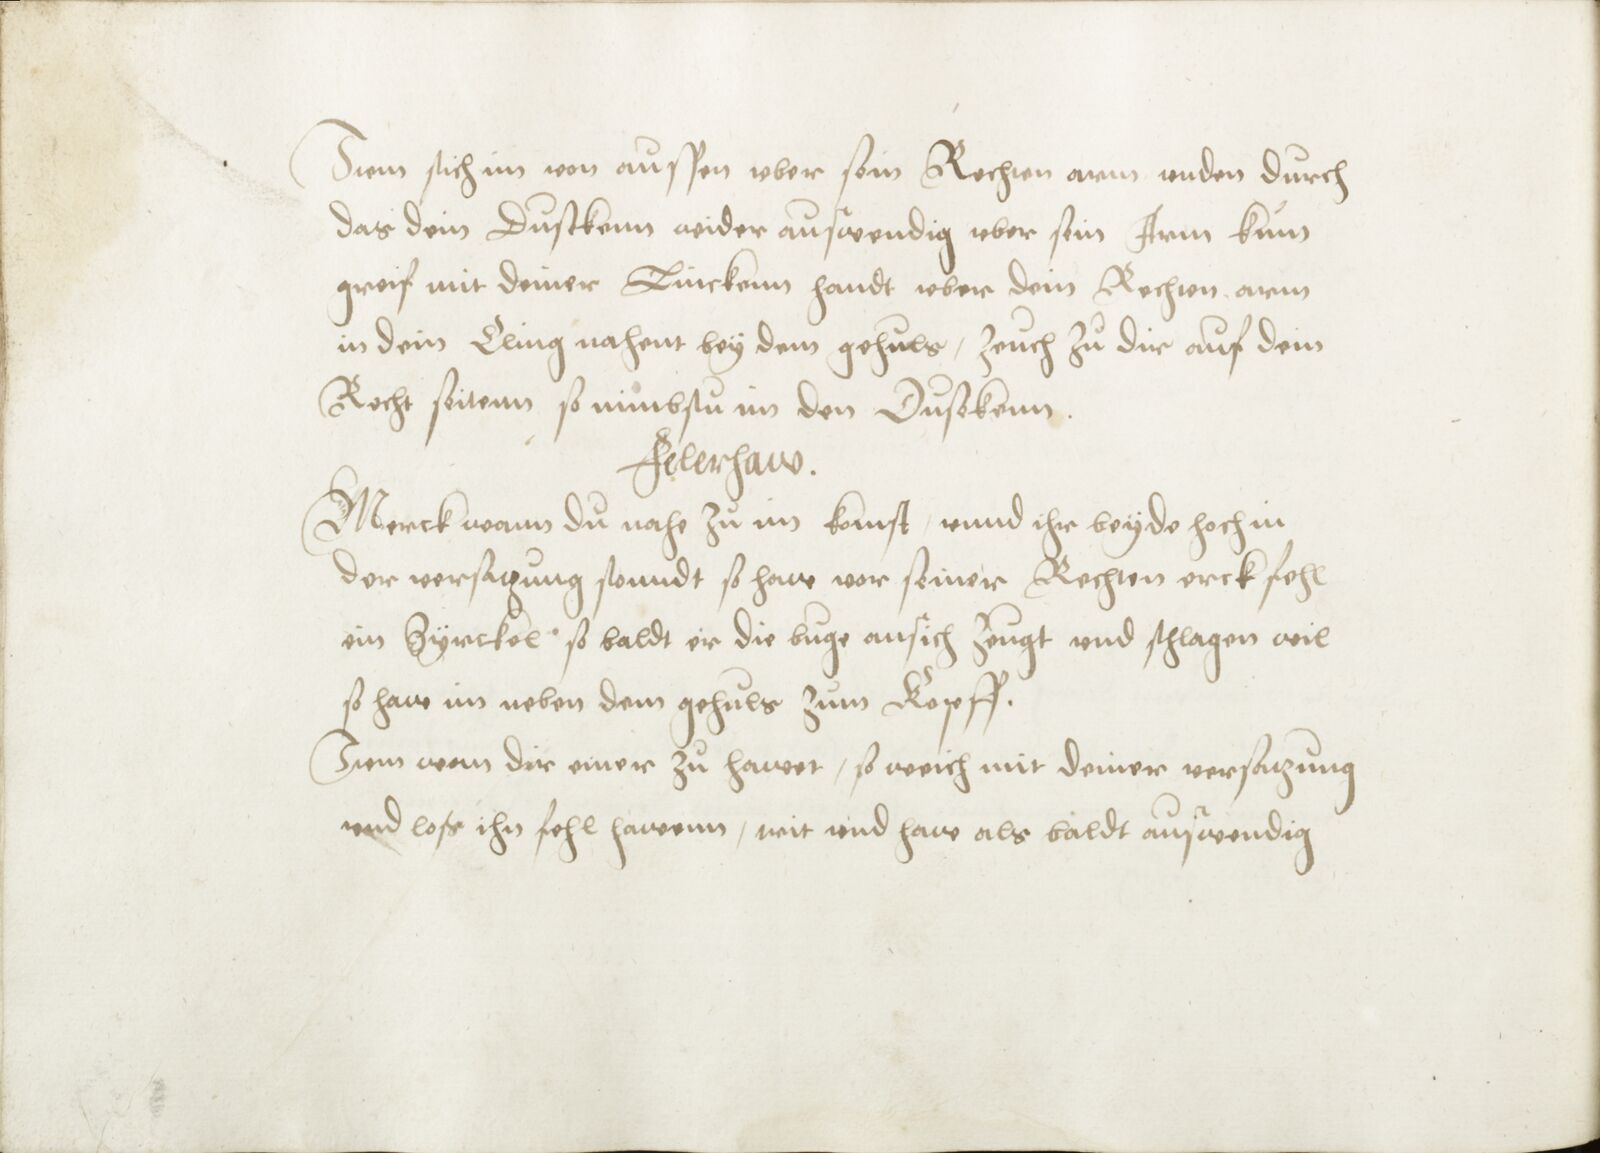 Item stich im von aussen vber sein Rechten arm unden durch
das dein Dusecken wider auswendig vber sein Arm kum
greif mit deiner Lincken handt vber dein Rechten arm
in dein Cling nahent bey dem gehuls, zeuch zu dir auf dein
Recht seitenn so nimbstu im den Dusekenn.
Felerhaw.
Merck wann du nahe zu im komst, vnnd ihr beyde hoch in
der versatzung stenndt so haw vor seiner Rechten fehl
ein Zyrckel so baldt er die auf sich zeugt vnd schlagen wil
so haw im neben dem gehuls zum Kopff.
Item wenn dir einer zu hawet, so weich mit deiner versatzung
vnd loss ihn fehl hawenn, trit vnd haw als baldt auswendig